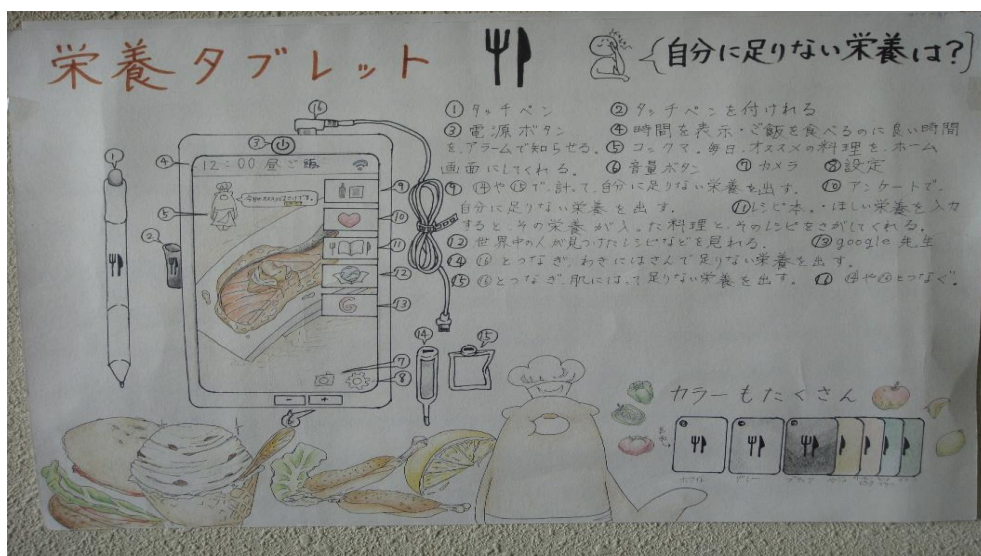 栄養タブレット
{自分に足りない栄養は?}
① タッチペン ② タッチペンを付けれる
③ 電源ボタン ④ 時間を表示・ご飯を食べるのに良い時間
を、アラームで知らせる。 ⑤ コックマ。毎日、オススメの料理を、ホーム
画面にしてくれる。 ⑥ 音量ボタン ⑦ カメラ ⑧ 設定
⑨ ⑭や⑮で、計って、自分に足りない栄養を出す。 ⑩ アンケートで、
自分に足りない栄養を出す。 ⑪ レシピ本。・ほしい栄養を入力
すると、その栄養が入った料理と、そのレシピをさがしてくれる。
⑫ 世界中の人が見つけたレシピなどを見れる。 ⑬ google先生
⑭ ⑯とつなぎ、わきにはさんで足りない栄養を出す。
⑮ ⑯とつなぎ、肌にはって足りない栄養を出す。 ⑯ ⑭や⑮とつなぐ。
①
②
③
④
⑤
⑯
12:00 昼ご飯
⑨
⑩
⑪
⑫
⑬
⑦
⑧
⑥
- +
⑭
⑮
カラーもたくさん
ホワイト グレー ブラック